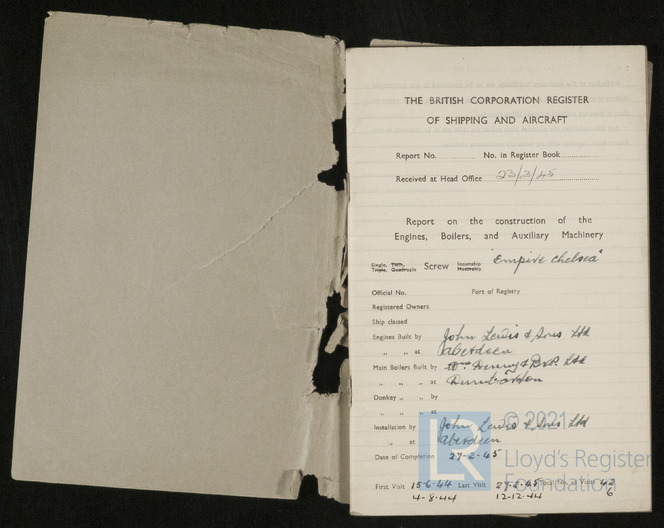 THE BRITISH CORPORATION REGISTER
OF SHIPPING AND AIRCRAFT
Report No. No. in Register Book
Received at Head Office 23/3/45
Report on the construction of the
Engines, Boilers, and Auxiliary Machinery
Single, Twin, Triple, Quadruple Screw Steamship Motorship "Empire Chelsea"
Official No. Port of Registry
Registered Owners
Ship classed
Engines Built by John Lewis & Sons Ltd
„ „ at Aberdeen
Main Boilers Built by Wm Denny & Bros. Ltd
„ „ „ at Dumbarton
Donkey „ „ by
„ „ „ at
Installation by John Lewis & Sons Ltd
„ at Aberdeen
Date of Completion 27-2-45
First Visit 15-6-44 Last Visit 27-2-45 Total No. of Visits 43
4-8-44 12-12-44 6
LR
© 2021
Lloyd's Register
Foundation